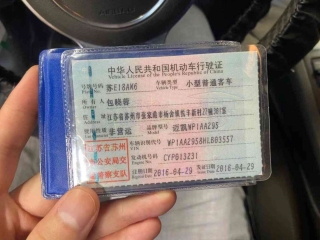 中华人民共和国机动车行驶证
Vehicle License of the People's Republic of China
号牌号码 苏E18AM6 车辆类型 小型普通客车
Plate No. Vehicle Type
所有人 包晓蓉
Owner
住址 江苏省苏州市张家港市杨舍镇
Address
使用性质 非营运 品牌型号 迈凯WP1AAZ95
江苏省苏州 车辆识别代号
市公安局交 发动机号码 CYP013231
通警察支队 注册日期 2016-04-29 发证日期 2016-04-29